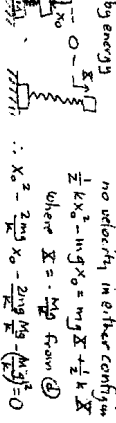 by energy
x₀
- 0 - X
no velocity in either configur
½ k x₀² - mg x₀ = mg X + ½ k X
where X = - Mg/k from ②
∴ x₀² - 2mg/k x₀ - 2mg/k Mg/k - (Mg/k)² = 0